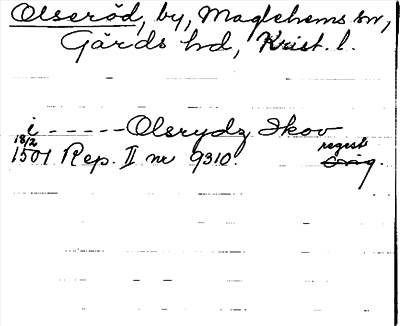 Olseröd, by, Maglehems sn,
Gärds hd, Krist. l.
i - - - - - Olsrydz Skov
18/2 regist
1501 Rep. II nr 9310. Orig.